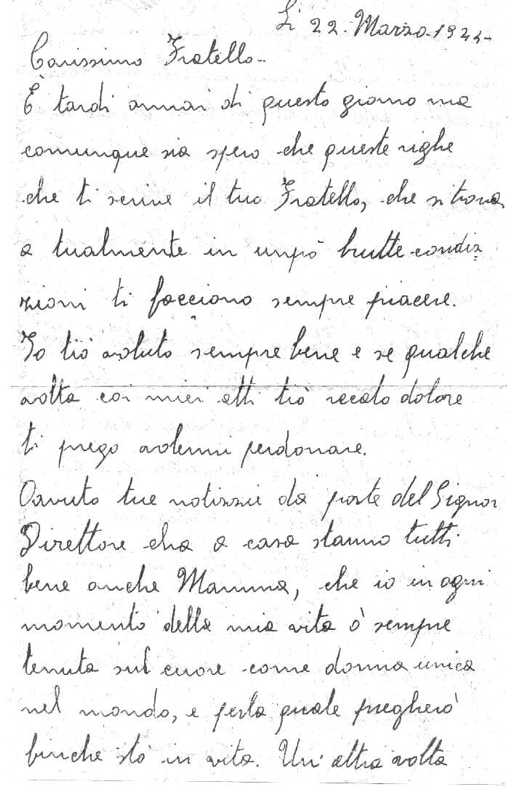 Li 22. Marzo. 1944-
Carissimo Fratello-
È tardi ormai di questo giorno ma
comunque sia spero che queste righe
che ti scrive il tuo Fratello, che si trova
a tualmente in unpò brutte condiz
zioni ti facciano sempre piacere.
Io tiò voluto sempre bene e se qualche
volta coi miei atti tiò recato dolore
ti prego volermi perdonare.
Oavuto tue notizzie da parte del Signor
Direttore cha a casa stanno tutti
bene anche Mamma, che io in ogni
momento della mia vita ò sempre
tenuta sul cuore come donna unica
nel mondo, e perla quale pregherò
finche stò in vita. Un'altra volta